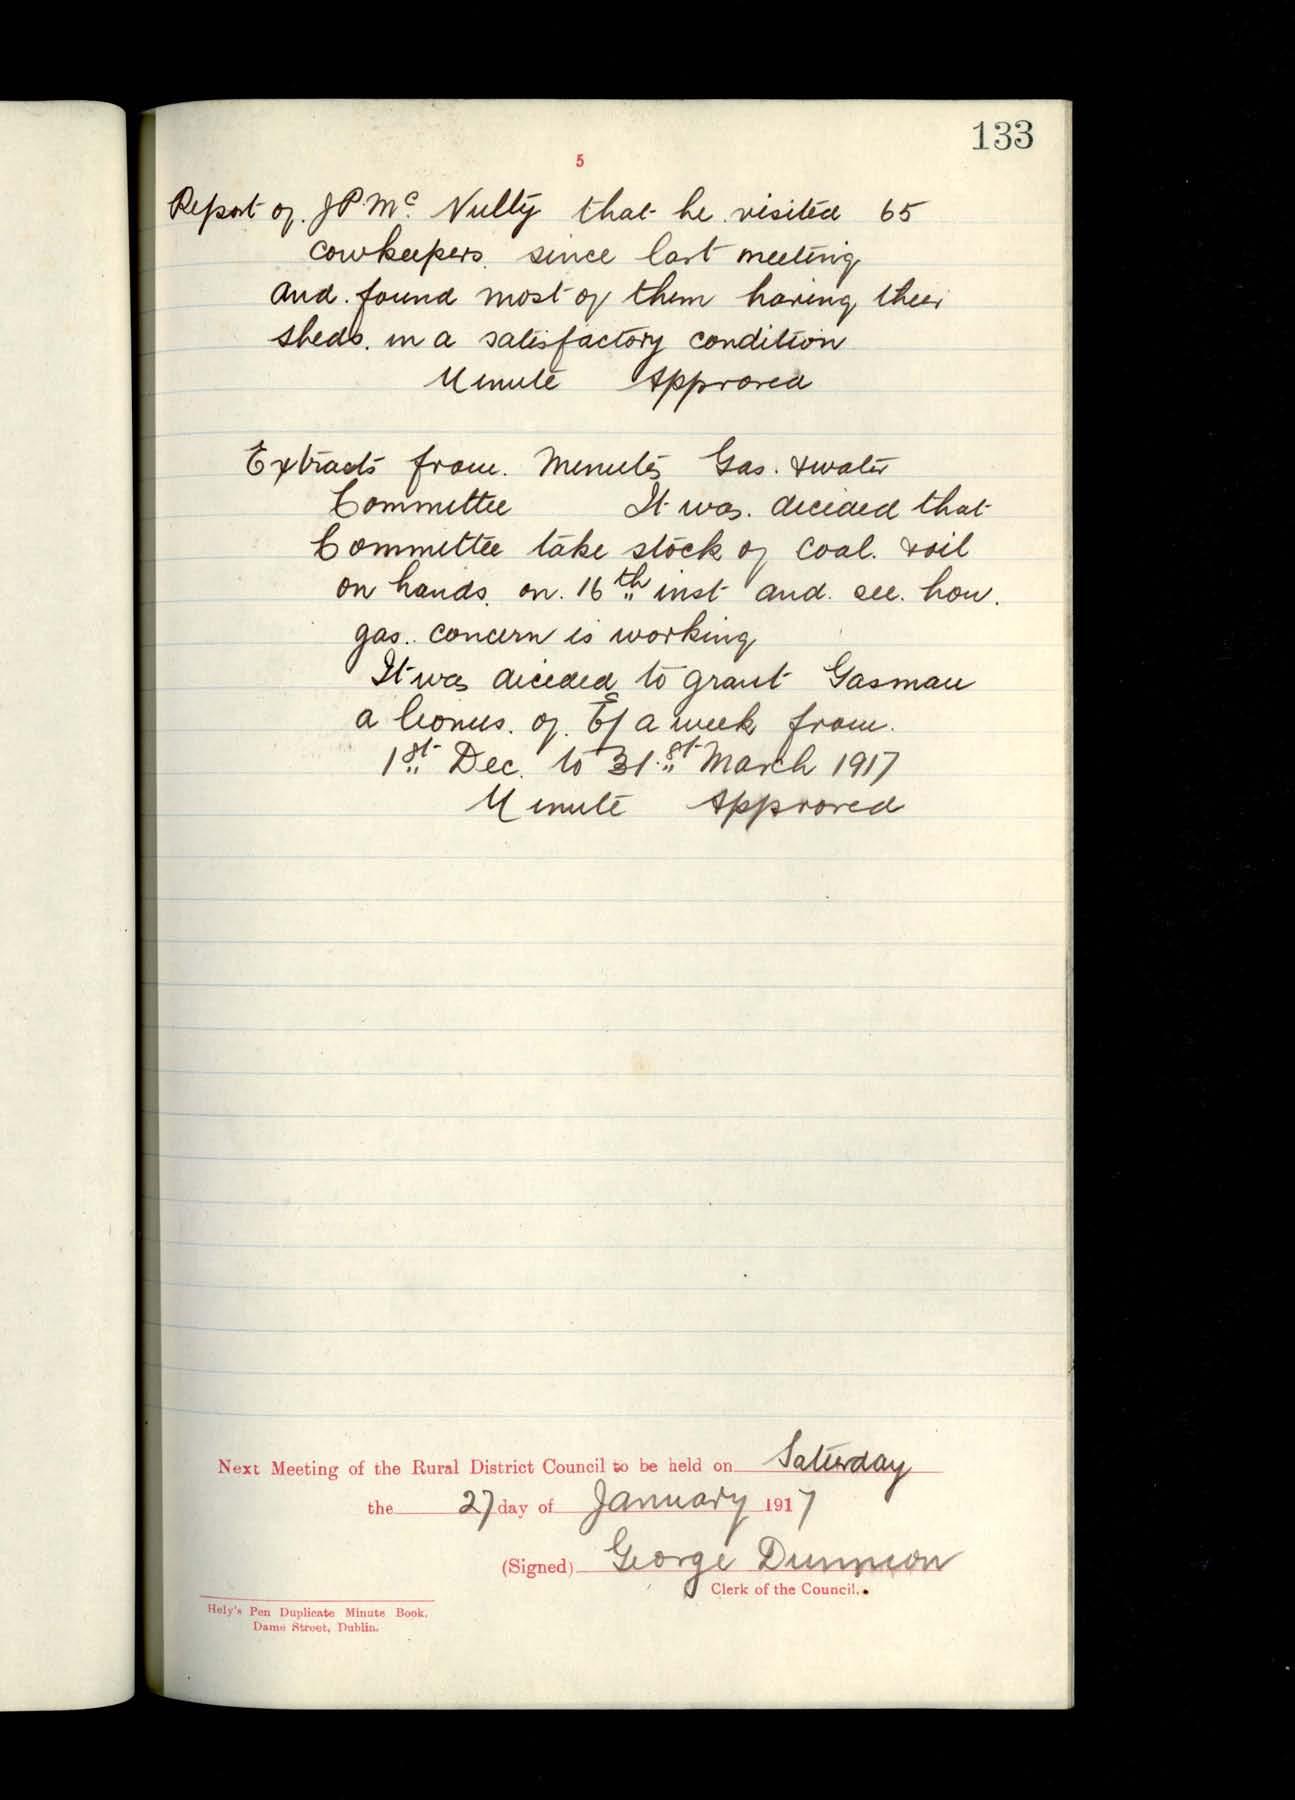 133
5
Report of J P Mc Nulty that he visited 65
cowkeepers since last meeting
and found most of them having their
sheds in a satisfactory condition
Minute Approved
Extracts from Minutes Gas & water
Committee It was decided that
Committee take stock of coal & oil
on hands on 16th inst and see how
gas concern is working
It was decided to grant Gasman
a bonus of a week from
1st Dec. to 31st March 1917
Minute Approved
Next Meeting of the Rural District Council to be held on Saturday
the 27 day of January 1917
(Signed) George Dunnion
Clerk of the Council.
Hely's Pen Duplicate Minute Book.
Dame Street, Dublin.